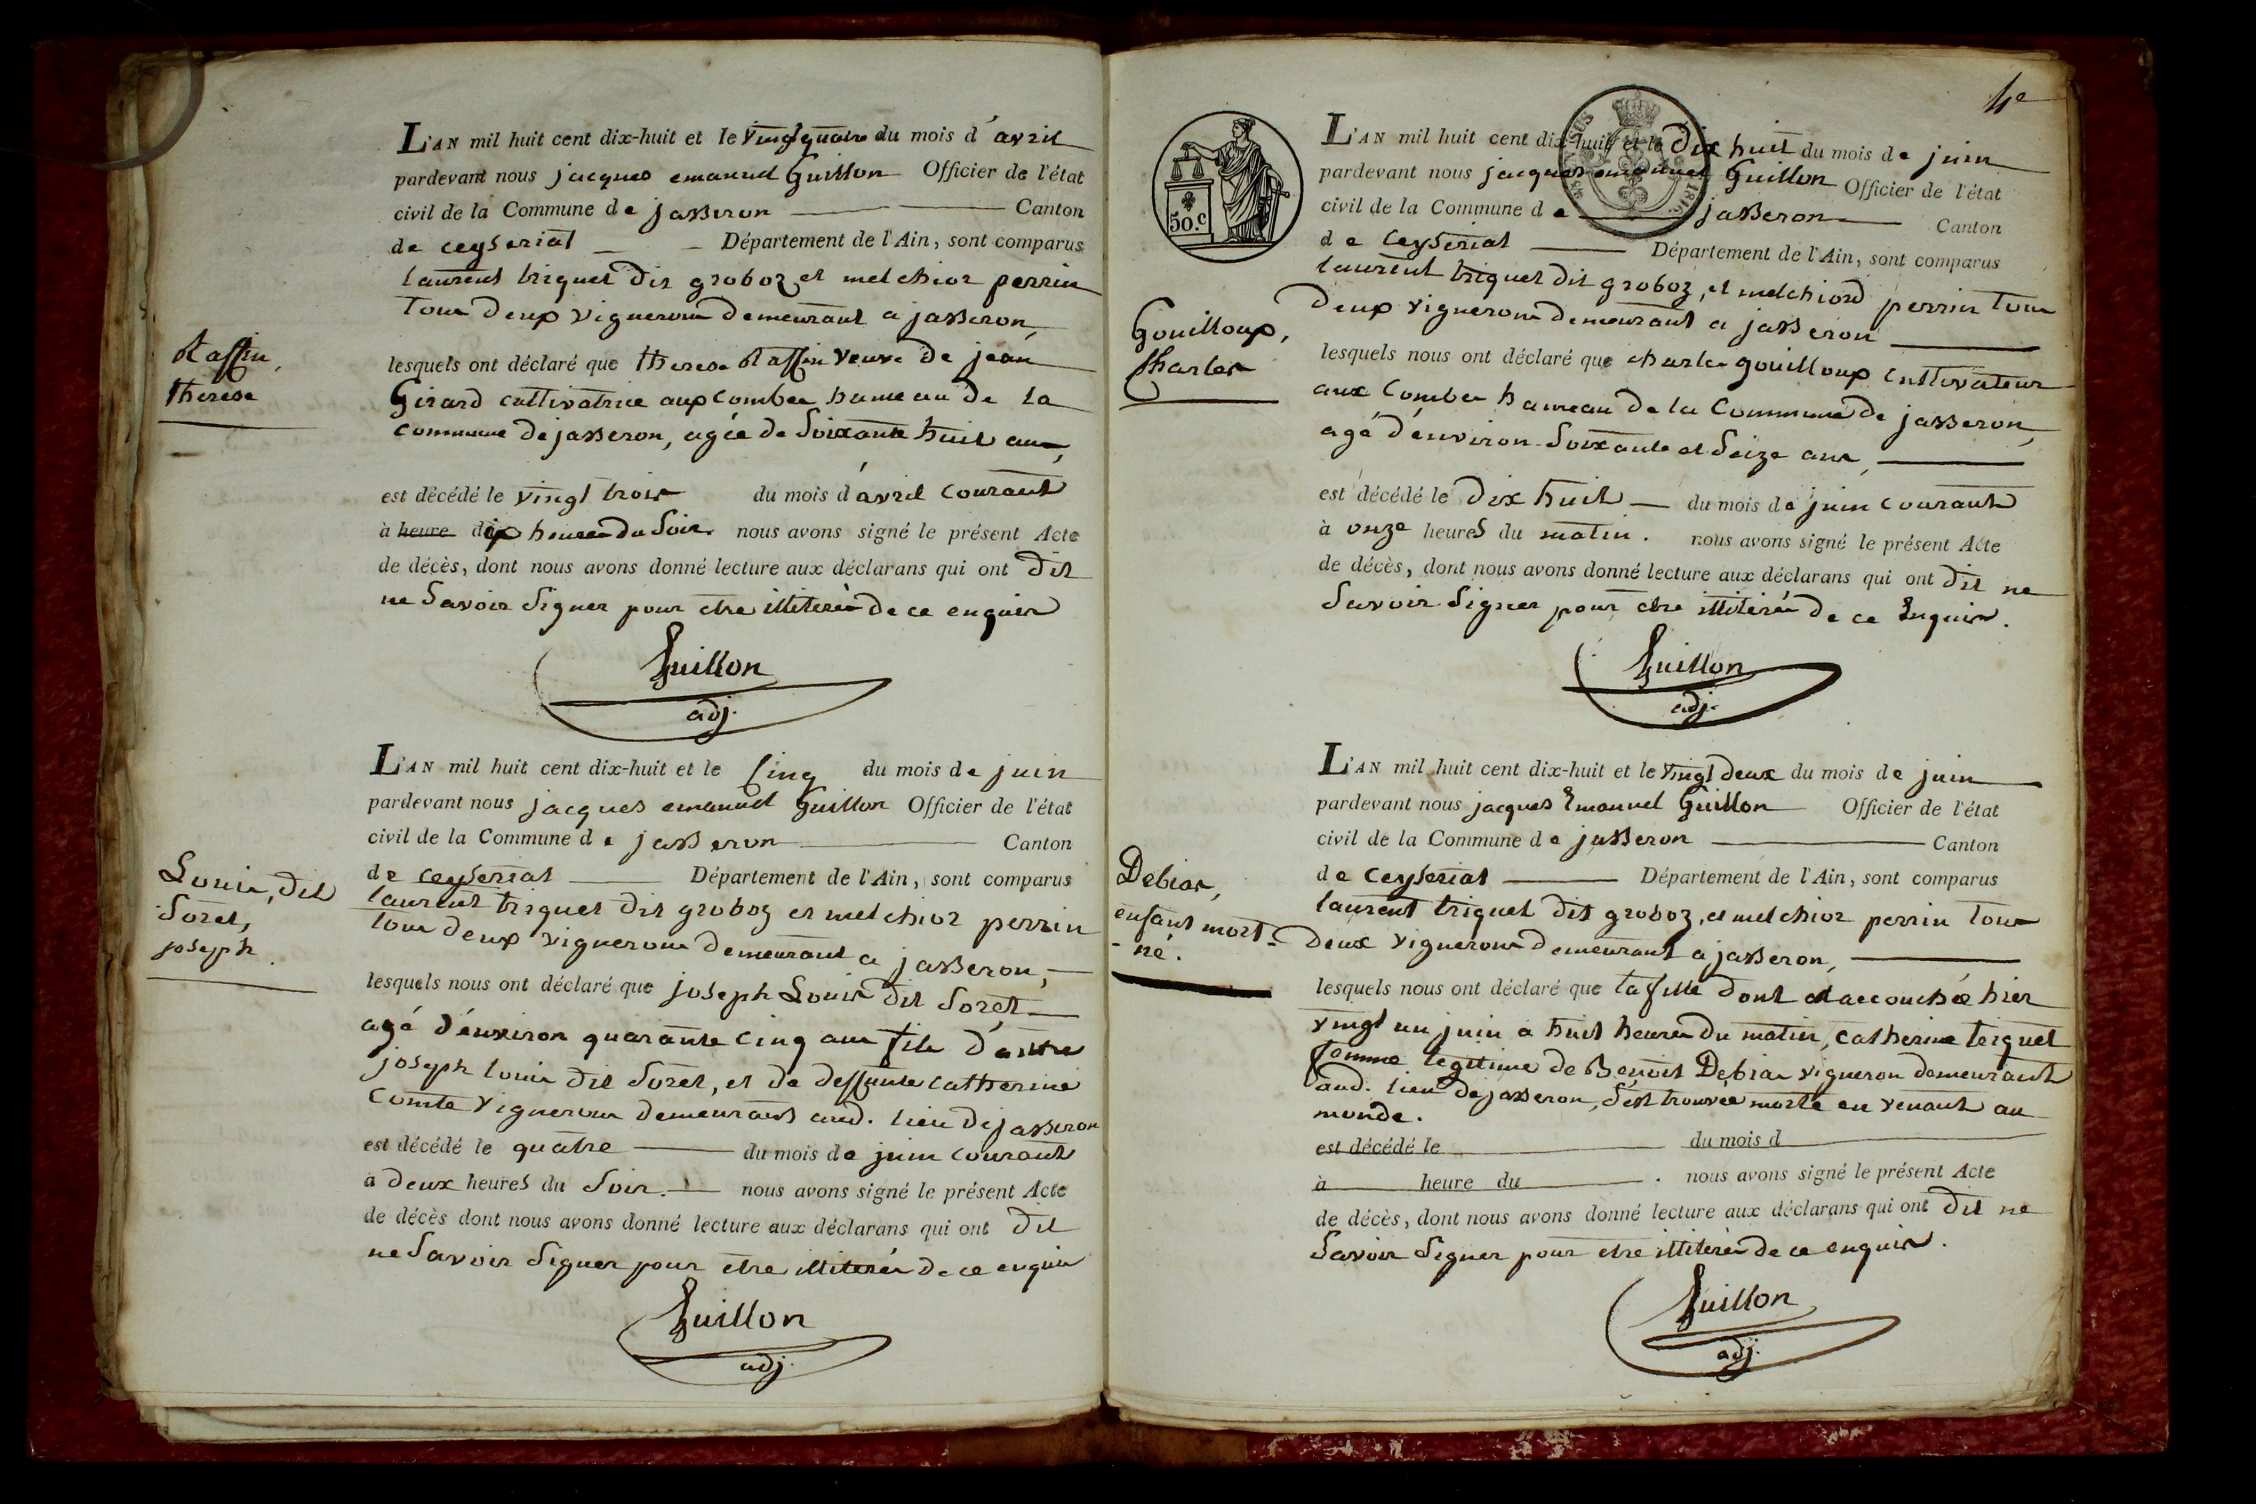 L'AN mil huit cent dix-huit et le vingt quatre du mois d'avril
pardevant nous jacques emanuel Guillon Officier de l'état
civil de la Commune de jasseron Canton
de ceyseriat Département de l'Ain, sont comparus
laurent triquet dit groboz et melchior perrin
tous deux vignerons demeurant a jasseron
Raffin,
therese
lesquels ont déclaré que therese Raffin veuve de jean
Girard cultivatrice aux combes hameau de la
commune de jasseron, agée de soixante huit ans,
est décédé le vingt trois du mois d'avril courant
à heure dix heures du soir nous avons signé le présent Acte
de décès, dont nous avons donné lecture aux déclarans qui ont dit
ne savoir signer pour etre illiterés de ce enquis
Guillon
adj.
L'AN mil huit cent dix-huit et le cinq du mois de juin
pardevant nous jacques emanuel Guillon Officier de l'état
civil de la Commune de jasseron Canton
de ceyseriat Département de l'Ain, sont comparus
laurent triquet dit groboz et melchior perrin
tous deux vignerons demeurant a jasseron,
Louis, dit
Soret,
joseph.
lesquels nous ont déclaré que joseph Louis dit Soret
agé d'environ quarante cinq ans fils d'autre
joseph louis dit Soret, et de deffunte catherine
Comte vignerons demeurans aud. lieu de jasseron
est décédé le quatre du mois de juin courant
à deux heures du soir. nous avons signé le présent Acte
de décès dont nous avons donné lecture aux déclarans qui ont dit
ne savoir signer pour etre illiterés de ce enquis
Guillon
adj.
4e
50.c
L'AN mil huit cent dix-huit et le dix huit du mois de juin
pardevant nous jacques emanuel Guillon Officier de l'état
civil de la Commune de jasseron Canton
de Ceyseriat Département de l'Ain, sont comparus
laurent triquet dit groboz, et melchiord perrin tous
deux vignerons demeurant a jasseron
Gouilloux,
Charles
lesquels nous ont déclaré que charles gouilloux cultivateur
aux Combes hameau de la Commune de jasseron,
agé d'environ soixante et seize ans,
est décédé le dix huit du mois de juin courant
à onze heures du matin. nous avons signé le présent Acte
de décès, dont nous avons donné lecture aux déclarans qui ont dit ne
savoir signer pour etre illiterés de ce enquis.
Guillon
adj.
L'AN mil huit cent dix-huit et le vingt deux du mois de juin
pardevant nous jacques Emanuel Guillon Officier de l'état
civil de la Commune de jasseron Canton
de Ceyseriat Département de l'Ain, sont comparus
laurent triquet dit groboz, et melchior perrin tous
deux vignerons demeurant a jasseron,
Debias,
enfant mort-
-né.
lesquels nous ont déclaré que la fille dont est accouchée hier
vingt un juin a huit heures du matin, catherine triquet
femme legitime de Benoit Debias vigneron demeurant
aud. lieu de jasseron, s'est trouvée morte en venant au
monde.
est décédé le du mois d
à heure du . nous avons signé le présent Acte
de décès, dont nous avons donné lecture aux déclarans qui ont dit ne
savoir signer pour etre illiterés de ce enquis.
Guillon
adj.